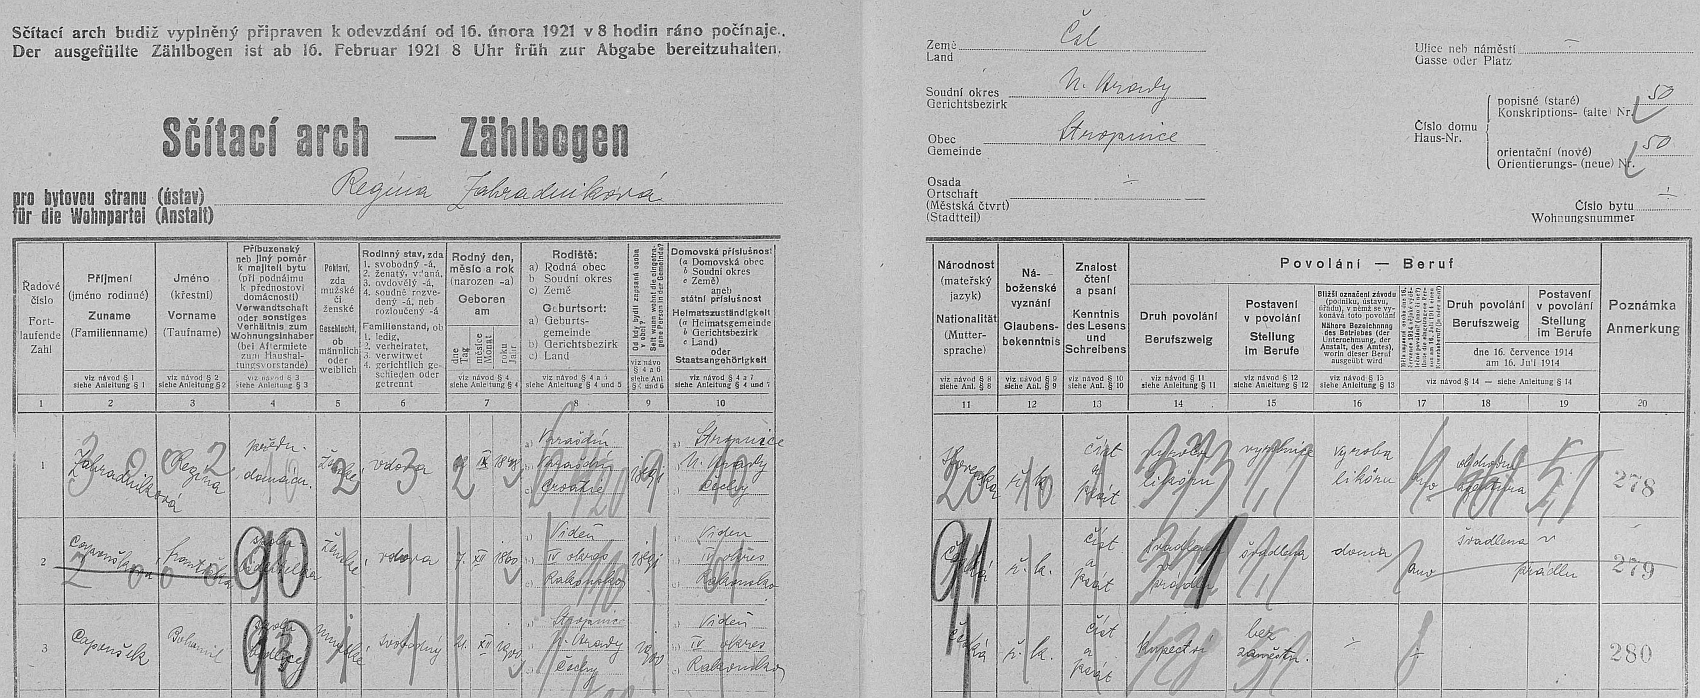 Sčítací arch budiž vyplněný připraven k odevzdání od 16. února 1921 v 8 hodin ráno počínaje.
Der ausgefüllte Zählbogen ist ab 16. Februar 1921 8 Uhr früh zur Abgabe bereitzuhalten.
Sčítací arch — Zählbogen
pro bytovou stranu (ústav)
für die Wohnpartei (Anstalt)
Regina Zahradníková
Země
Land
Čsl
Soudní okres
Gerichtsbezirk
N. Hrady
Obec
Gemeinde
Stropnice
Osada
Ortschaft
(Městská čtvrť)
(Stadtteil)
Ulice neb náměstí
Gasse oder Platz
Číslo domu
Haus-Nr.
popisné (staré)
Konskriptions- (alte) Nr.
50
orientační (nové)
Orientierungs- (neue) Nr.
50
Číslo bytu
Wohnungsnummer
Řadové
číslo
Fort-
laufende
Zahl
Příjmení
(jméno rodinné)
Zuname
(Familienname)
viz návod § 1
siehe Anleitung § 1
Jméno
(křestní)
Vorname
(Taufname)
viz návod § 2
siehe Anleitung § 2
Příbuzenský
neb jiný poměr
k majiteli bytu
(při podnájmu
k přednostovi
domácnosti)
Verwandtschaft
oder sonstiges
Verhältnis zum
Wohnungsinhaber
(bei Aftermiete
zum Haushal-
tungsvorstande)
viz návod § 3
siehe Anleitung § 3
Pohlaví,
zda
mužské
či
ženské
Geschlecht,
ob
männlich
oder
weiblich
Rodinný stav, zda
1. svobodný -á,
2. ženatý, vdaná,
3. ovdovělý -á,
4. soudně rozve-
dený -á, neb
rozloučený -á
Familienstand, ob
1. ledig,
2. verheiratet,
3. verwitwet
4. gerichtlich ge-
schieden oder
getrennt
Rodný den,
měsíc a rok
(narozen -a)
Geboren
am
dne
Tag
měsíce
Monat
roku
Jahr
viz návod § 4
siehe Anleitung § 4
Rodiště:
a) Rodná obec
b) Soudní okres
c) Země
Geburtsort:
a) Geburts-
gemeinde
b) Gerichtsbezirk
c) Land
viz návod § 4 a 5
siehe Anleitung § 4 und 5
Od kdy bydlí zapsaná osoba
v obci?
Seit wann wohnt die eingetra-
gene Person in der Gemeinde?
Domovská příslušnost
(a Domovská obec
b Soudní okres
c Země)
aneb
státní příslušnost
Heimatszuständigkeit
(a Heimatsgemeinde
b Gerichtsbezirk
c Land)
oder
Staatsangehörigkeit
viz návod § 4 a 7
siehe Anleitung § 4 und 7
Národnost
(mateřský
jazyk)
Nationalität
(Mutter-
sprache)
viz návod § 8
siehe Anl. § 8
Ná-
boženské
vyznání
Glaubens-
bekenntnis
viz návod § 9
siehe Anl. § 9
Znalost
čtení
a psaní
Kenntnis
des Lesens
und
Schreibens
viz návod § 10
siehe Anl. § 10
Povolání — Beruf
Druh povolání
Berufszweig
viz návod § 11
siehe Anleitung § 11
Postavení
v povolání
Stellung
im Berufe
viz návod § 12
siehe Anleitung § 12
Bližší označení závodu
(podniku, ústavu,
úřadu), v němž se vy-
konává toto povolání
Nähere Bezeichnung
des Betriebes (der
Unternehmung, der
Anstalt, des Amtes),
worin dieser Beruf
ausgeübt wird
viz návod § 13
siehe Anleitung § 13
Druh povolání
Berufszweig
Postavení
v povolání
Stellung
im Berufe
dne 16. července 1914
am 16. Juli 1914
viz návod § 14 — siehe Anleitung § 14
Poznámka
Anmerkung
1 2 3 4 5 6 7 8 9 10 11 12 13 14 15 16 17 18 19 20
1
Zahradníková
Regina
předn.
domácn.
žensk.
vdova
Varaždín
Varaždín
Croatie
1891
Stropnice
N. Hrady
Čechy
ř. k.
číst
a
psát
výroba
likérů
výroba
likérů
ano
obchodu
278
2
ženské
vdova
7. XII 1860
Vídeň
IV okres
Rakousko
1891
Vídeň
IV okres
Rakousko
Česká
ř. k.
číst
a
psát
švadlena
prádla
švadlena
doma
ano
švadlena
prádla
279
3
Capoušek
Bohumil
mužské
svobodný
21. XII 1900
Stropnice
N. Hrady
Čechy
1900
Vídeň
IV okres
Rakousko
Česká
ř. k.
číst
a
psát
kupectví
bez
zaměstn.
280